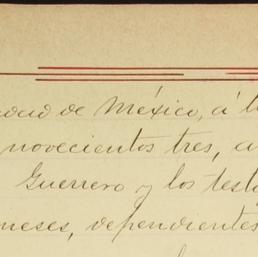 de México, á
novecientos tres,
Guerrero y los
meses, dependientes